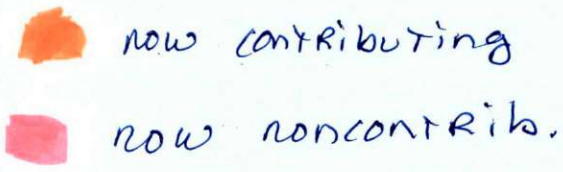 now contributing
now noncontrib.